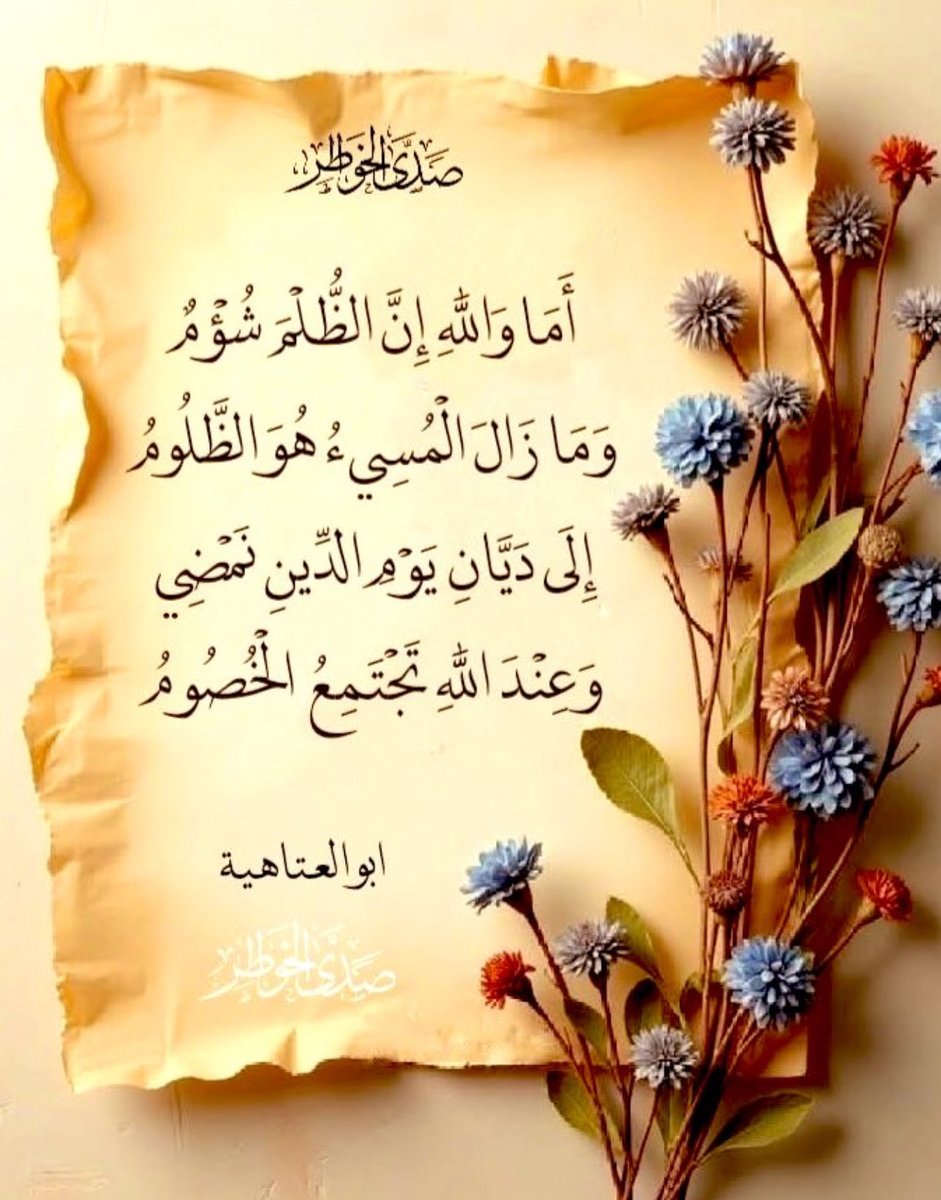 صَدَى الخَوَاطِر
أَمَا وَاللهِ إِنَّ الظُّلْمَ شُؤْمٌ
وَمَا زَالَ الْمُسِيءُ هُوَ الظَّلُومُ
إِلَى دَيَّانِ يَوْمِ الدِّينِ نَمْضِي
وَعِنْدَ اللهِ تَجْتَمِعُ الْخُصُومُ
ابو العتاهية
صَدَى الخَوَاطِر